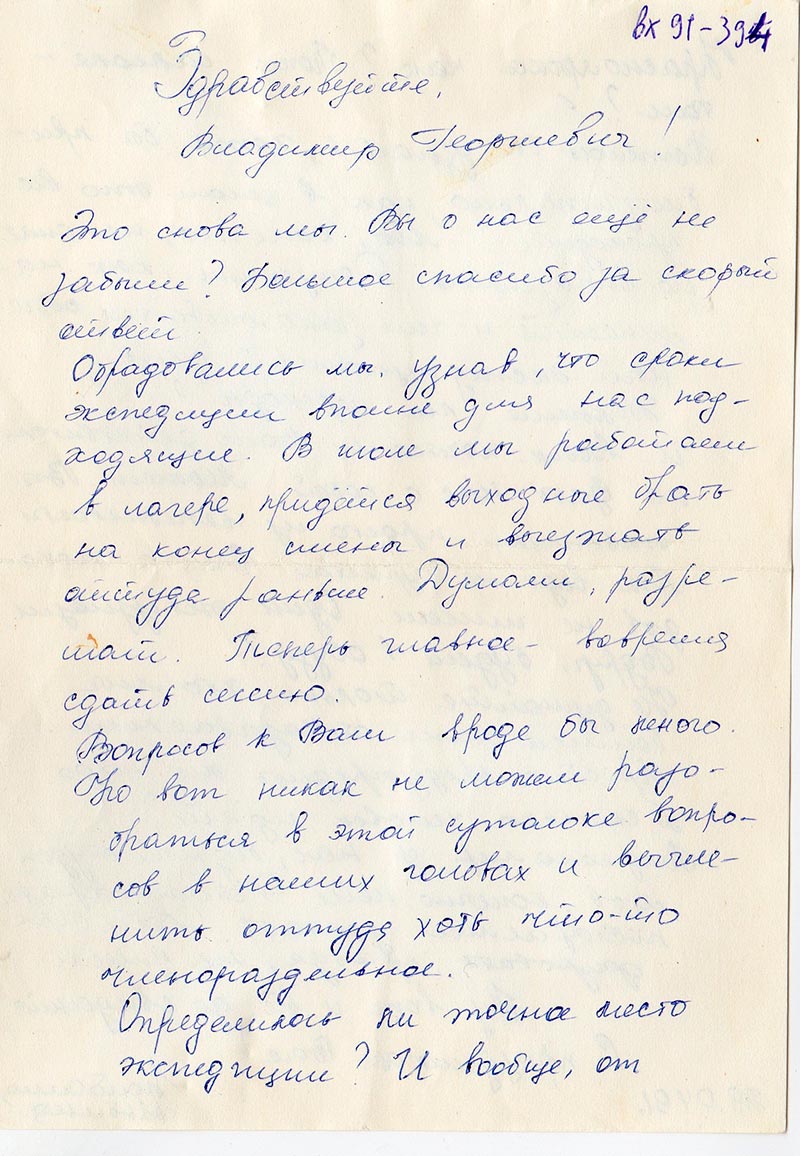 вх 91-394
Здравствуйте,
Владимир Георгиевич!
Это снова мы. Вы о нас ещё не
забыли? Большое спасибо за скорый
ответ.
Обрадовались мы, узнав, что сроки
экспедиции вполне для нас под-
ходящие. В июле мы работаем
в лагере, придётся выходные брать
на конец смены и выезжать
оттуда раньше. Думаем, разре-
шат. Теперь главное - вовремя
сдать сессию.
Вопросов к Вам вроде бы много.
Но вот никак не можем разо-
браться в этой сутолоке вопро-
сов в наших головах и вычле-
нить оттуда хоть что-то
членораздельное.
Определилось ли точно место
экспедиции? И вообще, от